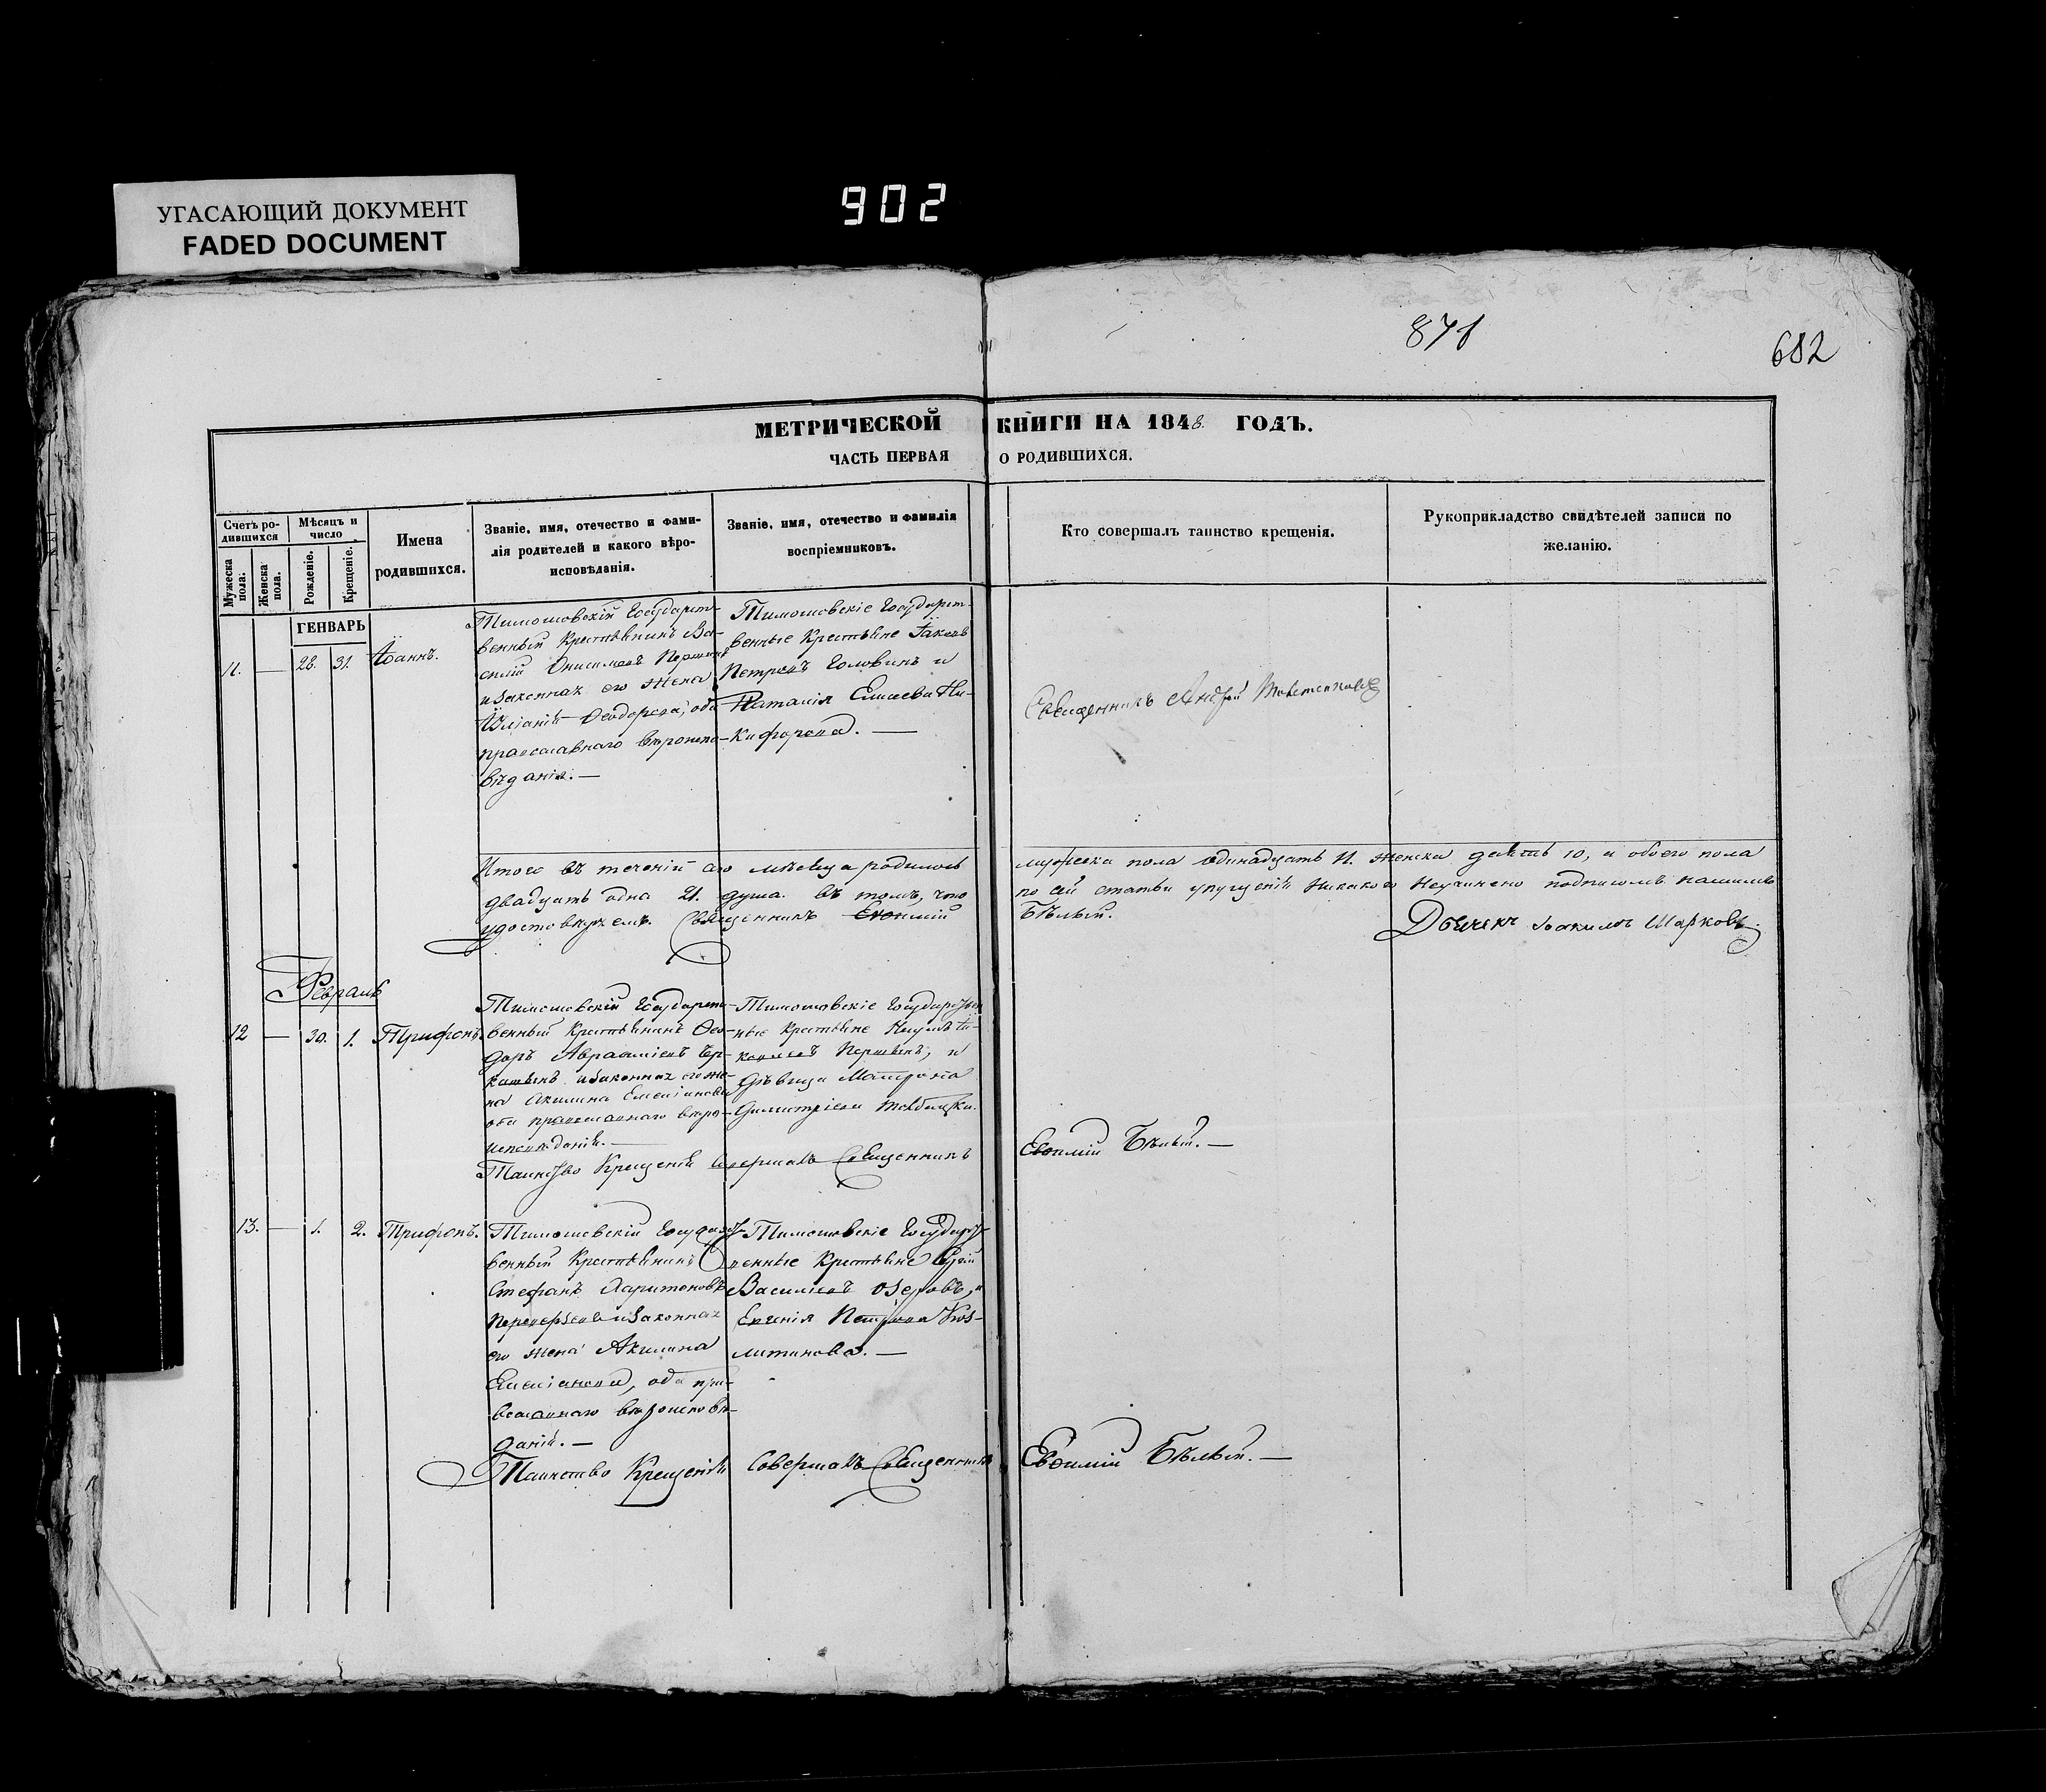 УГАСАЮЩИЙ ДОКУМЕНТ
FADED DOCUMENT
902
871
682
МЕТРИЧЕСКОЙ КНИГИ НА 1848. ГОДЪ.
ЧАСТЬ ПЕРВАЯ О РОДИВШИХСЯ.
Счетъ ро-
дившихся
Мужеска пола.
Женска пола.
Мѣсяцъ и
число
Рожденіе.
Крещеніе.
Имена
родившихся.
Званіе, имя, отечество и фами-
лія родителей и какого вѣро-
исповѣданія.
Званіе, имя, отечество и фамилія
воспріемниковъ.
Кто совершалъ таинство крещенія.
Рукоприкладство свидѣтелей записи по
желанію.
ГЕНВАРЬ
11. — 28. 31. Іоаннъ.
Тимошовскій Государст-
венный Крестьянинъ Ва-
силій Онисимовъ
и законная его жена
Феодорова, оба
православнаго вѣроиспо-
вѣданія. —
Тимошовскіе Государст-
венные Крестьяне Іаковъ
Петровъ Головинъ и
Наталія Елисеева Ни-
кифорова. —
Священникъ Андрей
Итого въ теченіи сего мѣсяца родилось
двадцать одна 21. душа. въ томъ, что
удостовѣряемъ. Священникъ Евѳимій
мужеска пола одинадцать 11. женска десять 10, и обоего пола
по сей статьи упущенія никакого неучинено подписомъ нашимъ
Бѣлый.
Дьячекъ Іоакимъ Марковъ.
Февраль
12 — 30. 1. Трифонъ.
Тимошовскій Государст-
венный Крестьянинъ Ѳео-
доръ Аврааміевъ Чер-
кашинъ и законная его же-
на Акилина Емеліанова
оба православнаго вѣро-
исповѣданія. —
Тимошовскіе Государствен-
ные Крестьяне Наумъ Ти-
и
дѣвица Матрона
Димитріева
Таинство Крещенія совершалъ Священникъ
Евѳимій Бѣлый. —
13. — 1. 2. Трифонъ.
Тимошевскій Государст-
венный Крестьянинъ
Стефанъ Харитоновъ
и законная
его жена Акилина
Емеліанова, оба пра-
вославнаго вѣроисповѣ-
данія. —
Тимошовскіе Государст-
венные Крестьяне Сергій
Васильевъ Озеровъ, и
Евгенія Петрова Коз-
митинова. —
Таинство Крещенія Совершалъ Священникъ
Евѳимій Бѣлый. —